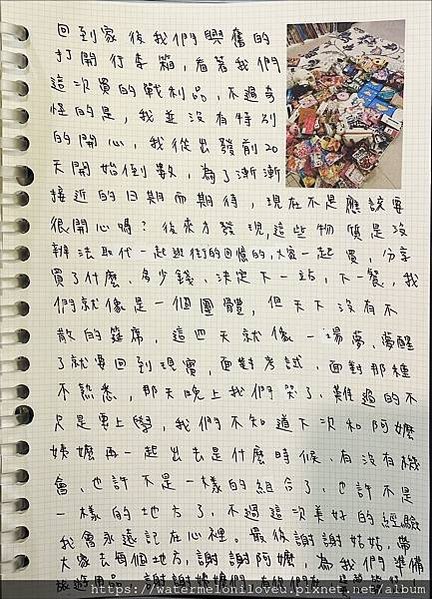 回到家後我們興奮的
打開行李箱,看著我們
這次買的戰利品,不過奇
怪的是,我並沒有特別
的開心,我從出發前20
天開始倒數,為了漸漸
接近的日期而期待,現在不是應該要
很開心嗎?後來才發現,這些物質是沒
辦法取代一起逛街的回憶的,大家一起買,分享
買了什麼、多少錢、決定下一站,下一餐,我
們就像是一個團體,但天下沒有不
散的筵席,這四天就像一場夢,夢醒
了就要回到現實,面對考試、面對那種
不熟悉,那天晚上我們哭了,難過的不
只是要上學,我們不知道下次和阿嬤
姨嬤再一起出去是什麼時候,有沒有機
會,也許不是一樣的組合了,也許不是
一樣的地方了,不過這次美好的經驗
我會永遠記在心裡。最後謝謝姑姑,帶
大家去每個地方,謝謝阿嬤,為我們準備
旅遊用品,謝謝姨嬤們
https://watermeloniloveu.pixnet.net/album